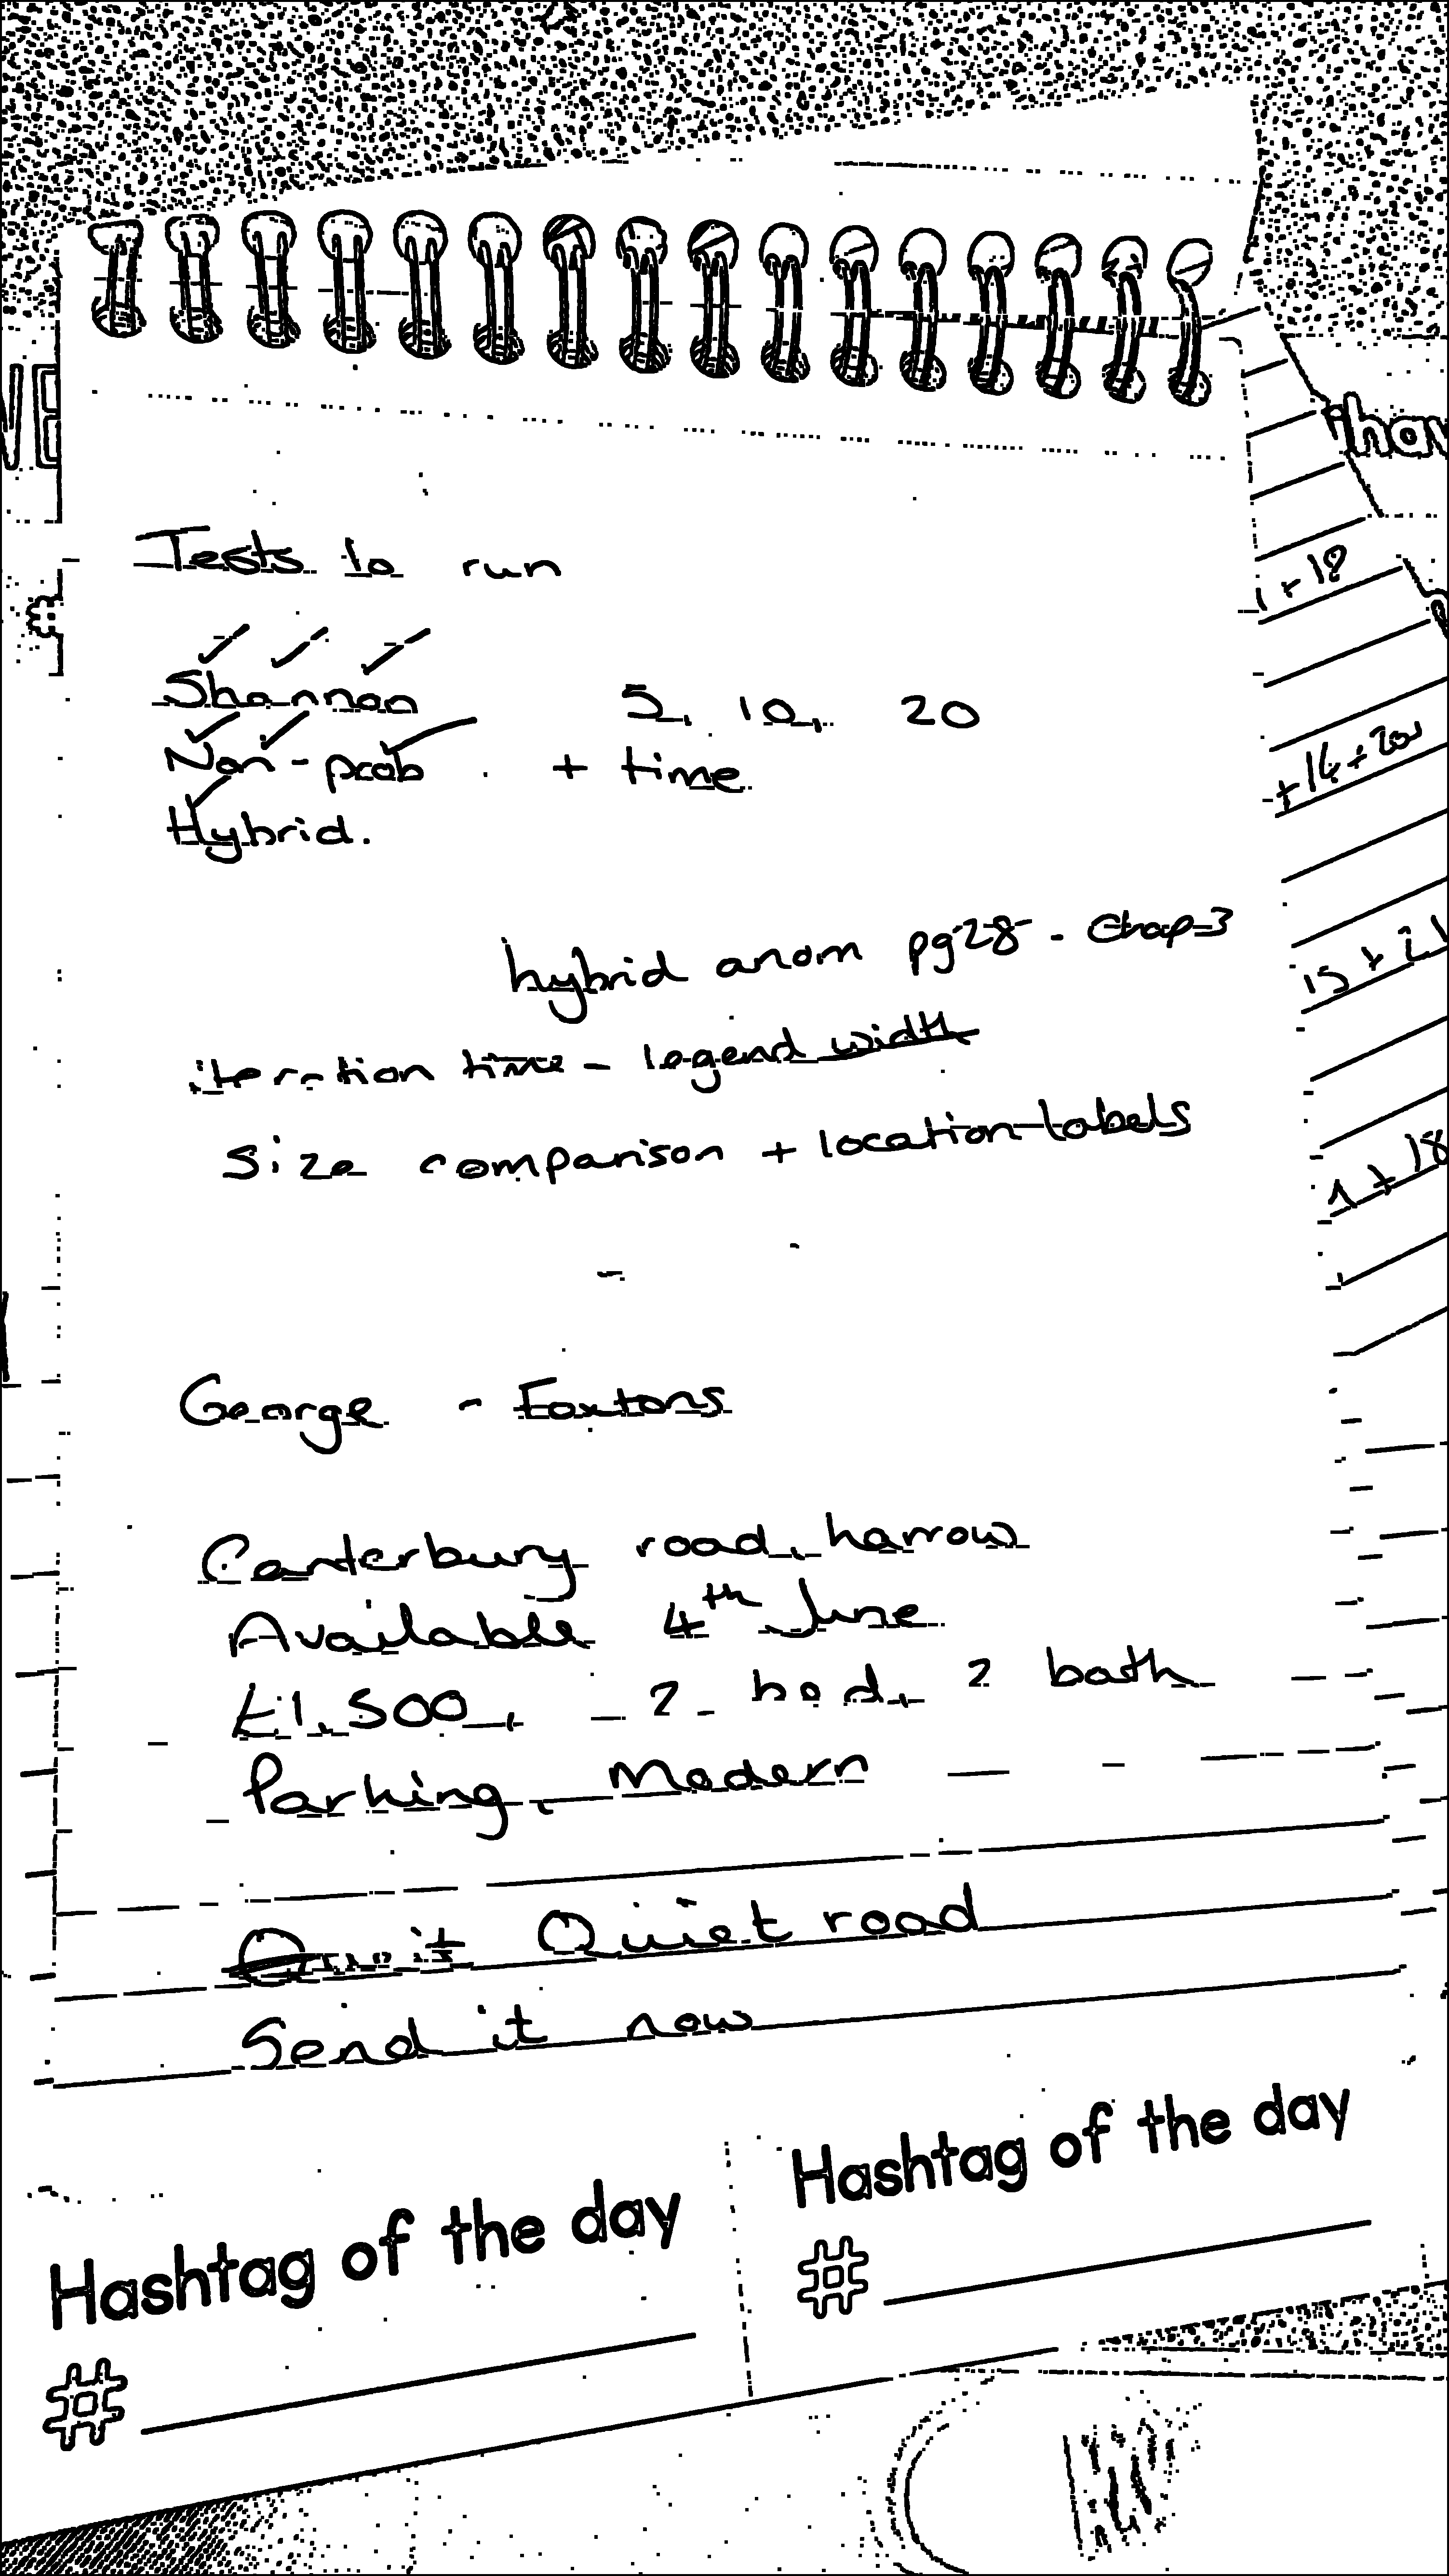 Tests to run
Shannon 5, 10, 20
Non-prob + time
Hybrid.
hybrid anom pg 28 - Chap 3
iteration time - legend width
size comparison + location labels
George - Foxtons
Canterbury road, harrow
Available 4th June
£1,500, 2 bed, 2 bath
Parking, Modern
Quiet road
Send it now
Hashtag of the day
#
Hashtag of the day
#